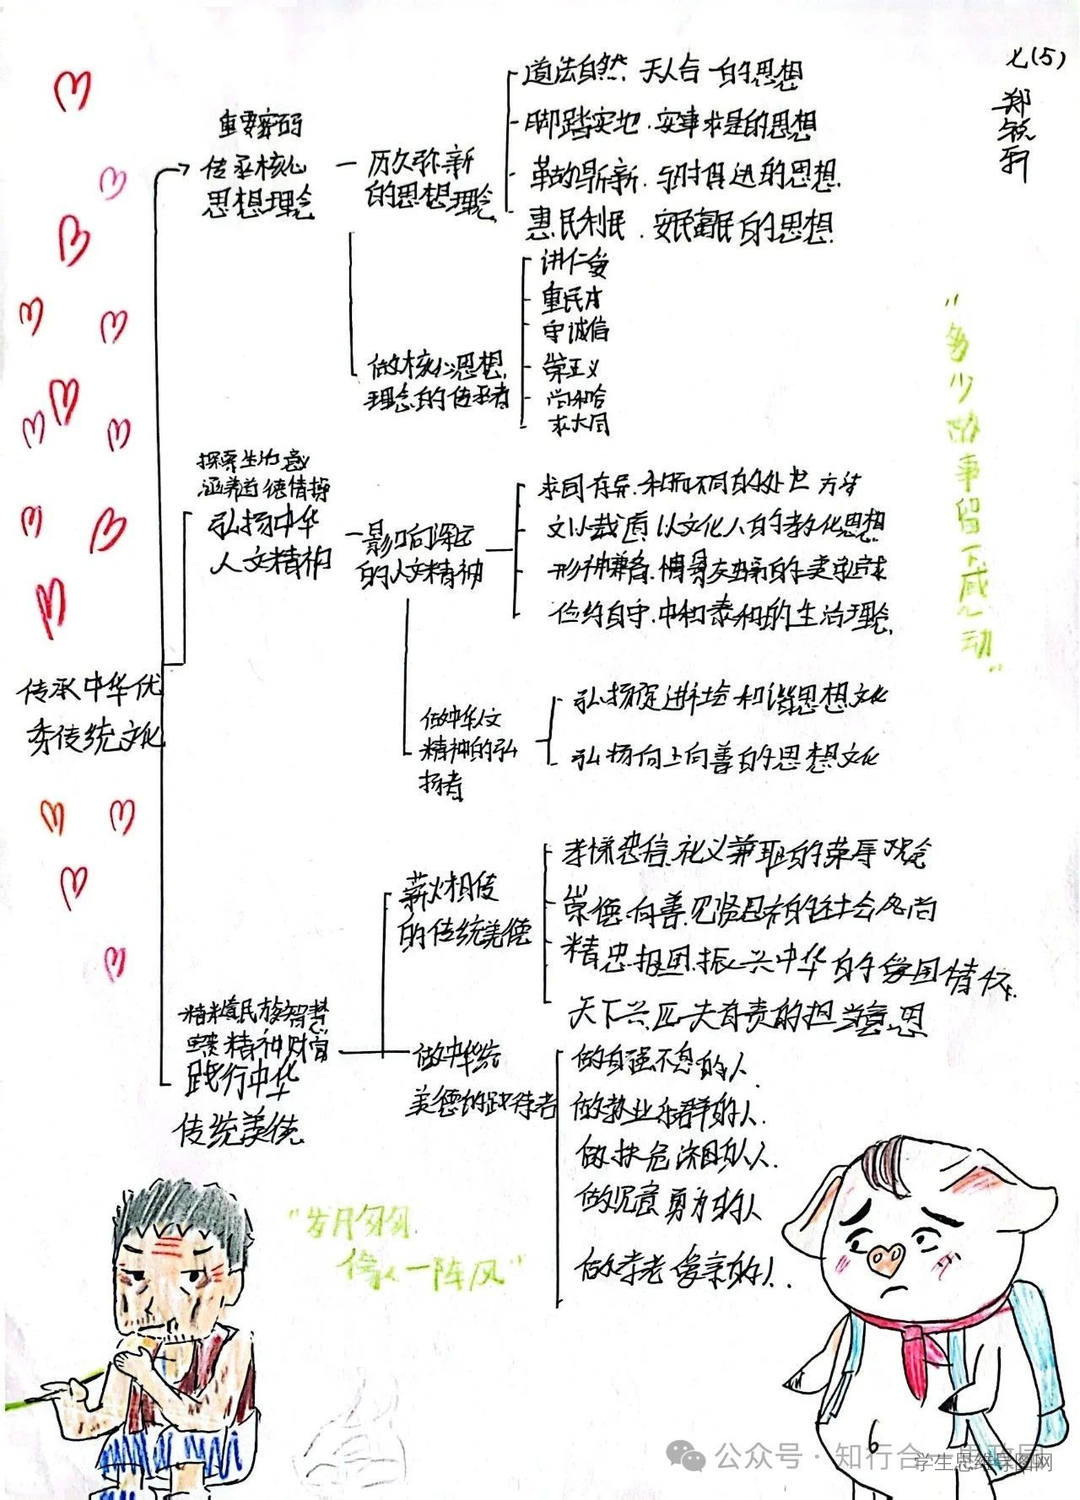 七(5)
郑
道法自然、天人合一的思想
脚踏实地、实事求是的思想
革故鼎新、与时俱进的思想
惠民利民、安民富民的思想
重要密码
传承核心
思想理念
历久弥新
的思想理念
讲仁爱
重民本
守诚信
崇正义
尚和合
求大同
做核心思想
理念的传承者
"多少故事留下感动"
探索生治意义
涵养道德情操
弘扬中华
人文精神
影响深远
的人文精神
求同存异、和而不同的处世方法
文以载道以文化人的教化思想
形神兼备、情景交融的美学追求
俭约自守、中和泰和的生活理念
做中华人文
精神的弘
扬者
弘扬促进社会和谐思想文化
弘扬向上向善的思想文化
传承中华优
秀传统文化
薪火相传
的传统美德
孝悌忠信、礼义廉耻的荣辱观念
崇德向善、见贤思齐的社会风尚
精忠报国、振兴中华的爱国情怀
天下兴亡匹夫有责的担当意思
民族智慧
精神财富
践行中华
传统美德
做中华传统
美德的践行者
做自强不息的人
做敬业乐群的人
做扶危济困的人
做见意勇为的人
做孝老爱亲的人
"岁月匆匆
像一阵风"
公众号·知行合一
学生思维导图网